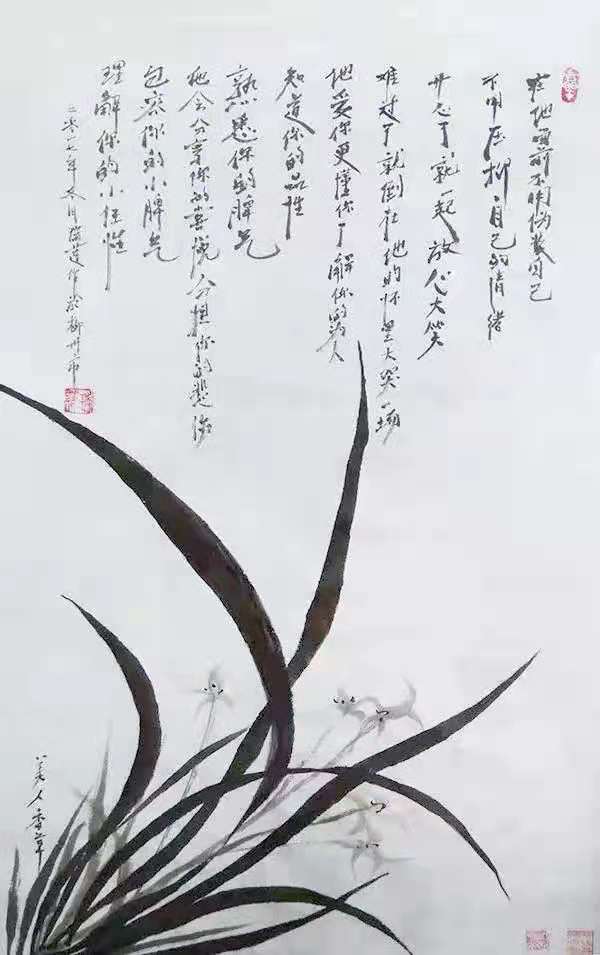 在他面前不用伪装自己
不用压抑自己的情绪
开心了就一起放心大笑
难过了就倒在他的怀里大哭一场
他爱你更懂你了解你的为人
知道你的品性
熟悉你的脾气
他会分享你的喜悦分担你的悲伤
包容你的小脾气
理解你的小任性
二零一七年冬月莲作於柳州市
美人香草